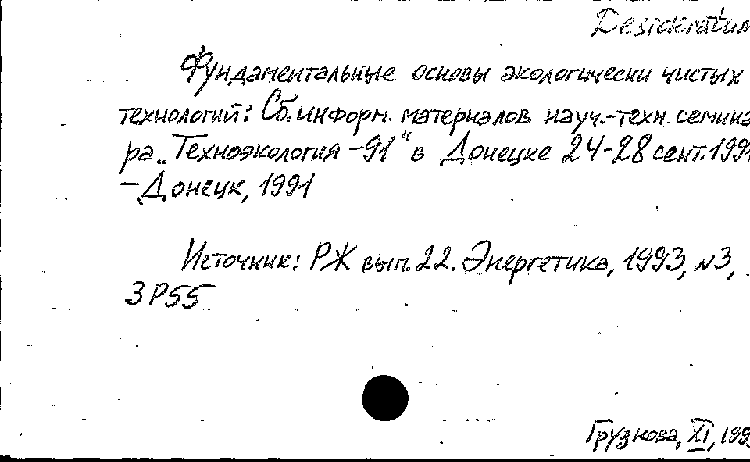 Desideratum
Фундаментальные основы экологически чистых
технологий: Сб. информ. материалов науч.-техн. семина
ра „Техноэкология-91" в Донецке 24-28 сент. 1991
-Донецк, 1991
Источник: РЖ вып. 22. Энергетика, 1993, №3,
3Р55
Грузнова, XI, 199